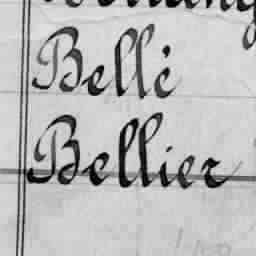 Bellé
Bellier